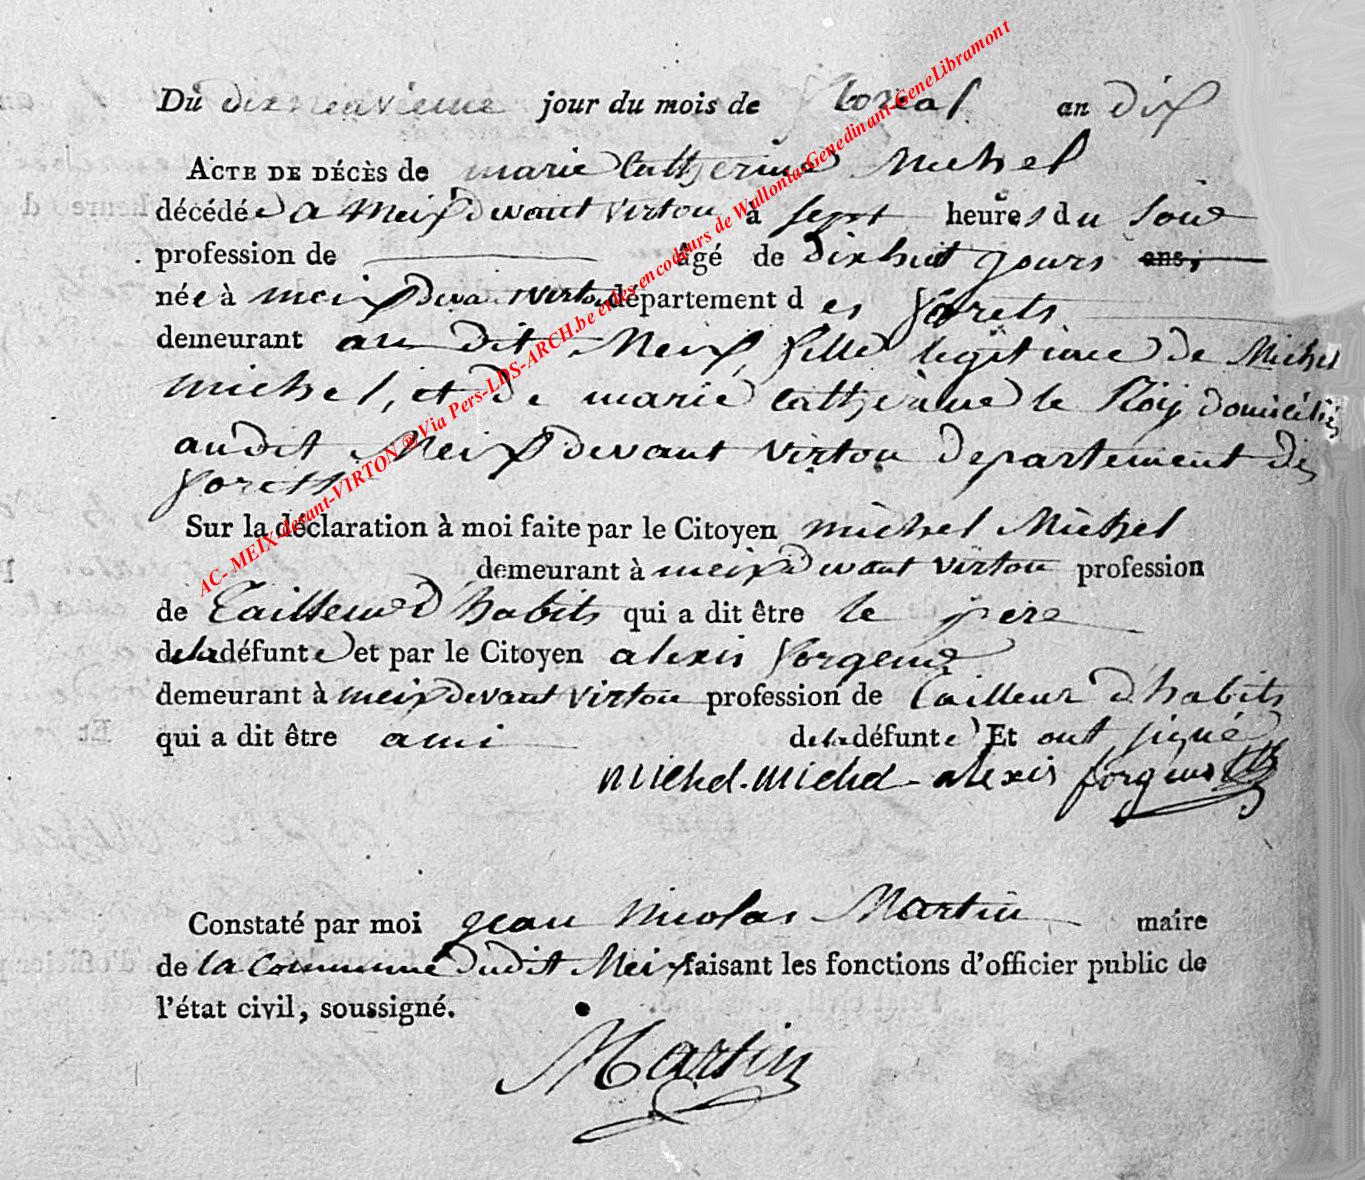 Du dixneuvieme jour du mois de floreal an dix
ACTE DE DÉCÈS de marie Catherine Michel
décédée a Meix devant virton à sept heures du soir
profession de âgé de dixhuit jours ans,
née à meix devant virton département des forets
demeurant au dit Meix, fille legitime de Michel
michel, et de marie catherine le Roy domiciliés
audit Meix devant virton departement des
forets
Sur la déclaration à moi faite par le Citoyen michel Michel
demeurant à meix devant virton profession
de Tailleur d'habits qui a dit être le pere
de la défunte et par le Citoyen alexis forgeur
demeurant à meix devant virton profession de Tailleur d'habits
qui a dit être ami de la défunte Et ont signé
michel. michel - alexis
Constaté par moi jean nicolas Martin maire
de la Commune dudit Meix faisant les fonctions d'officier public de
l'état civil, soussigné.
Martin
AC- MEIX devant-VIRTON ® Via Pers-LDS-ARCH.be et les encodeurs de Wallonia-Genedinant-GeneLibramont